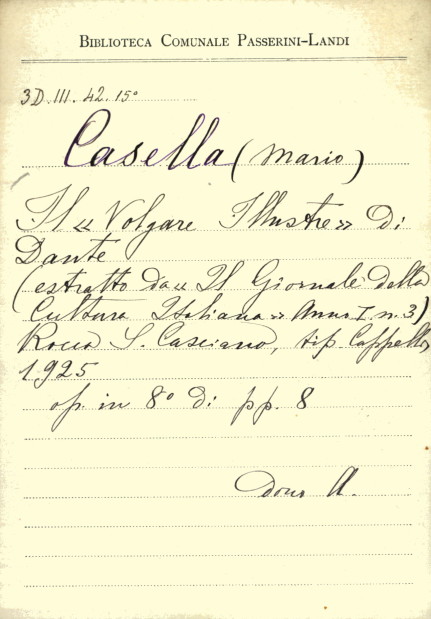 BIBLIOTECA COMUNALE PASSERINI-LANDI
3D.III.42.15°
Casella (Mario)
Il « Volgare Illustre » di
Dante
(estratto da « Il Giornale della
Cultura Italiana » Anno I. n. 3)
Rocca S. Casciano, tip. Cappelli,
1925
op. in 8° di pp. 8
dono A.